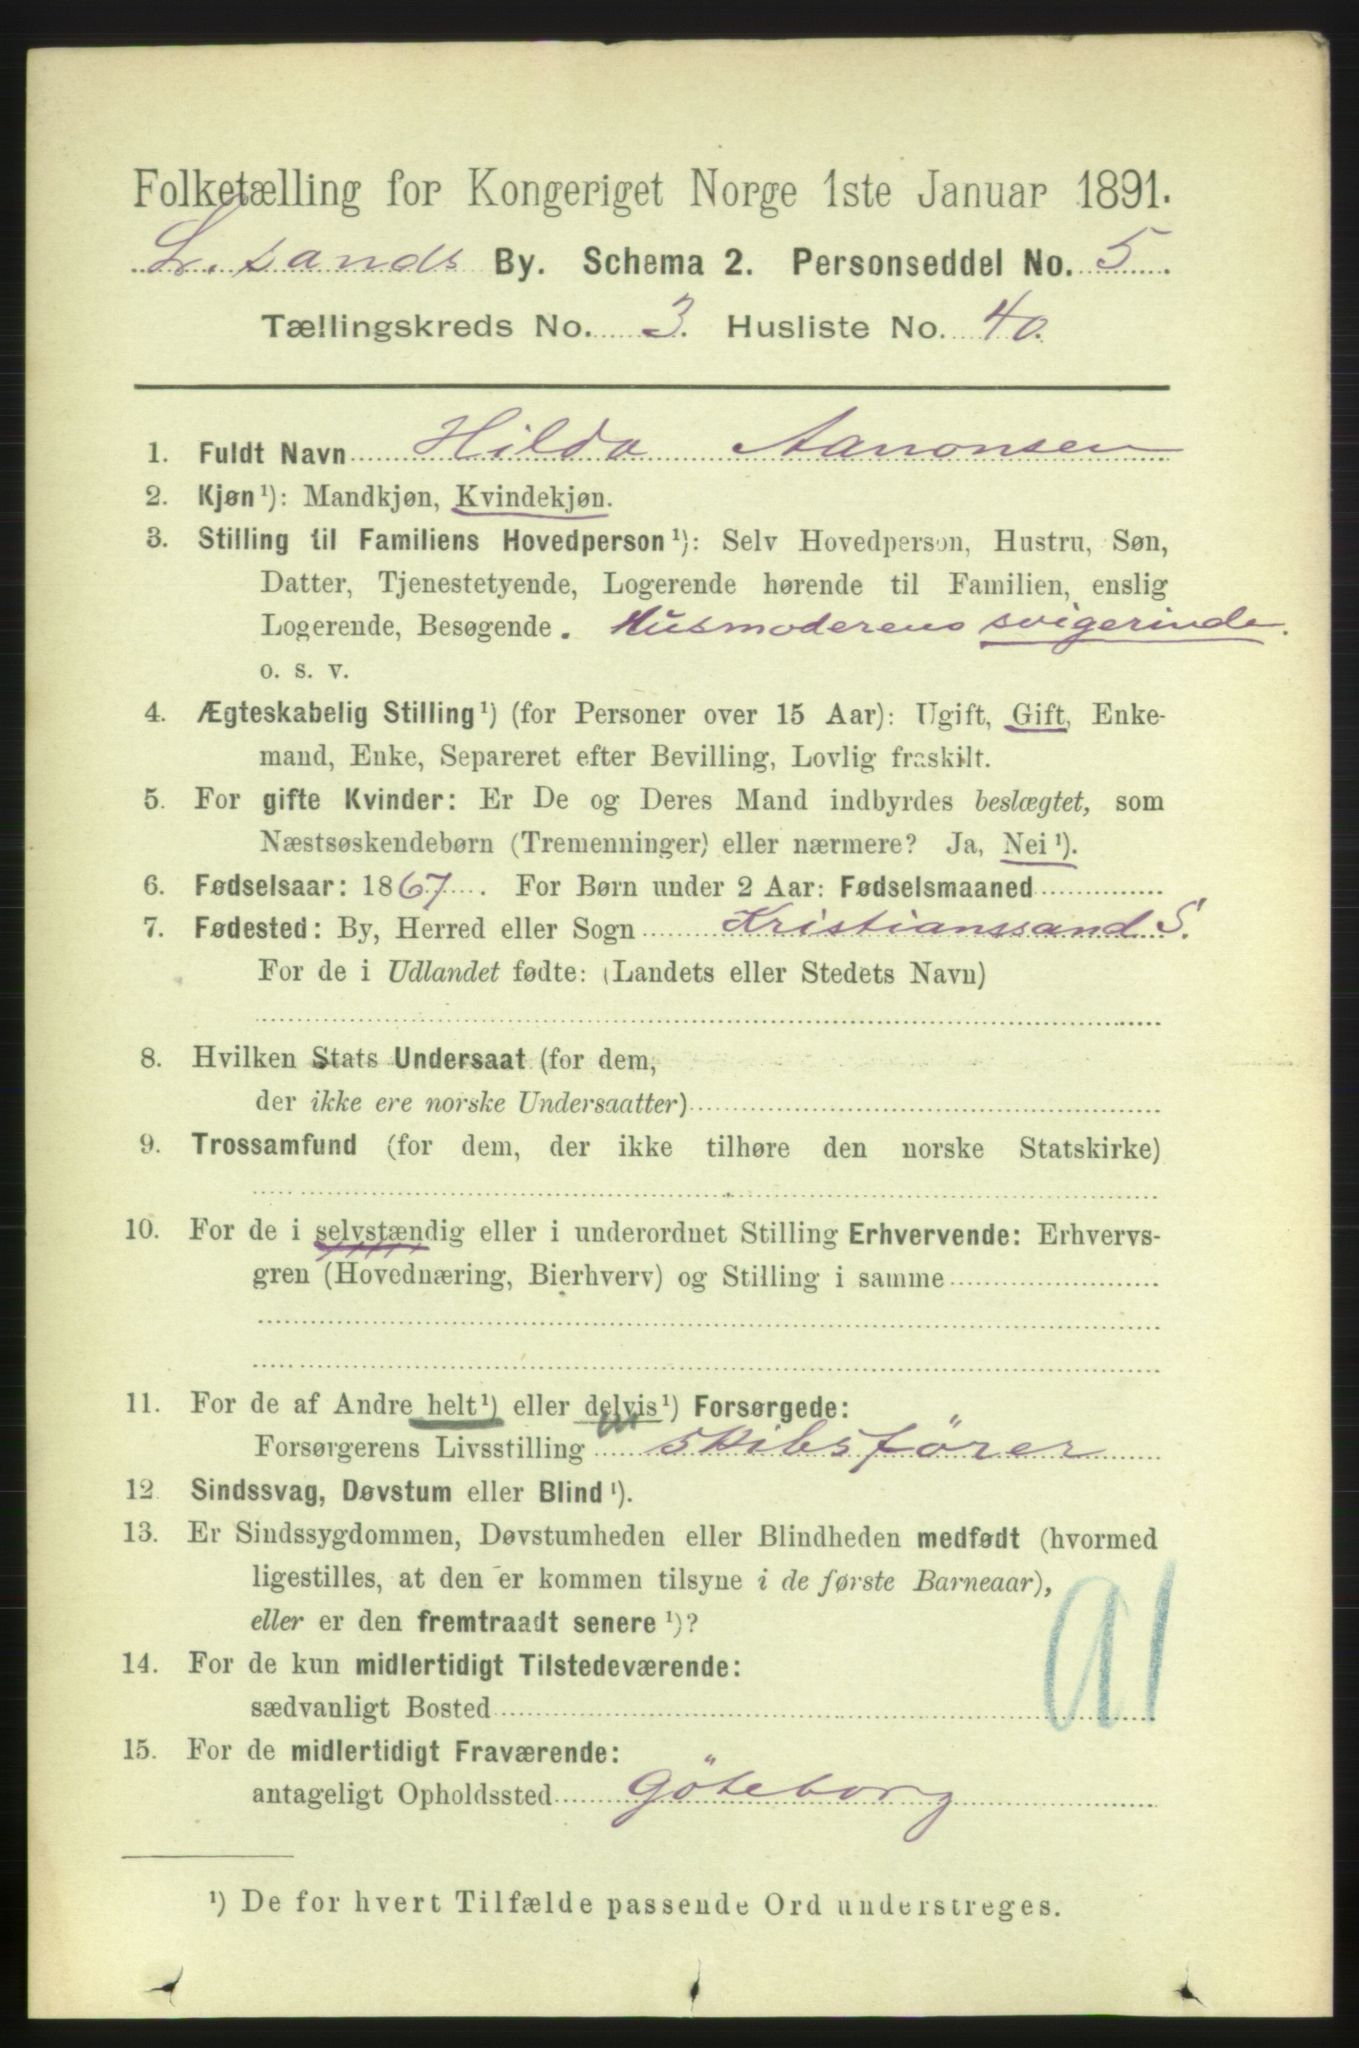 Folketælling for Kongeriget Norge 1ste Januar 1891.
L.sands By. Schema 2. Personseddel No. 5.
Tællingskreds No. 3. Husliste No. 40.
1. Fuldt Navn Hilda Aanonsen
2. Kjøn¹): Mandkjøn, Kvindekjøn.
3. Stilling til Familiens Hovedperson¹): Selv Hovedperson, Hustru, Søn,
Datter, Tjenestetyende, Logerende hørende til Familien, enslig
Logerende, Besøgende. Husmoderens svigerinde.
o. s. v.
4. Ægteskabelig Stilling¹) (for Personer over 15 Aar): Ugift, Gift, Enke-
mand, Enke, Separeret efter Bevilling, Lovlig fraskilt.
5. For gifte Kvinder: Er De og Deres Mand indbyrdes beslægtet, som
Næstsøskendebørn (Tremenninger) eller nærmere? Ja, Nei¹).
6. Fødselsaar: 1867. For Børn under 2 Aar: Fødselsmaaned
7. Fødested: By, Herred eller Sogn Kristianssand S.
For de i Udlandet fødte: (Landets eller Stedets Navn)
8. Hvilken Stats Undersaat (for dem,
der ikke ere norske Undersaatter)
9. Trossamfund (for dem, der ikke tilhøre den norske Statskirke)
10. For de i selvstændig eller i underordnet Stilling Erhvervende: Erhvervs-
gren (Hovednæring, Bierhverv) og Stilling i samme
11. For de af Andre helt¹) eller delvis¹) Forsørgede:
Forsørgerens Livsstilling skibsfører
12. Sindssvag, Døvstum eller Blind¹).
13. Er Sindssygdommen, Døvstumheden eller Blindheden medfødt (hvormed
ligestilles, at den er kommen tilsyne i de første Barneaar),
eller er den fremtraadt senere¹)?
14. For de kun midlertidigt Tilstedeværende:
sædvanligt Bosted
91
15. For de midlertidigt Fraværende:
antageligt Opholdssted Göteborg
¹) De for hvert Tilfælde passende Ord understreges.